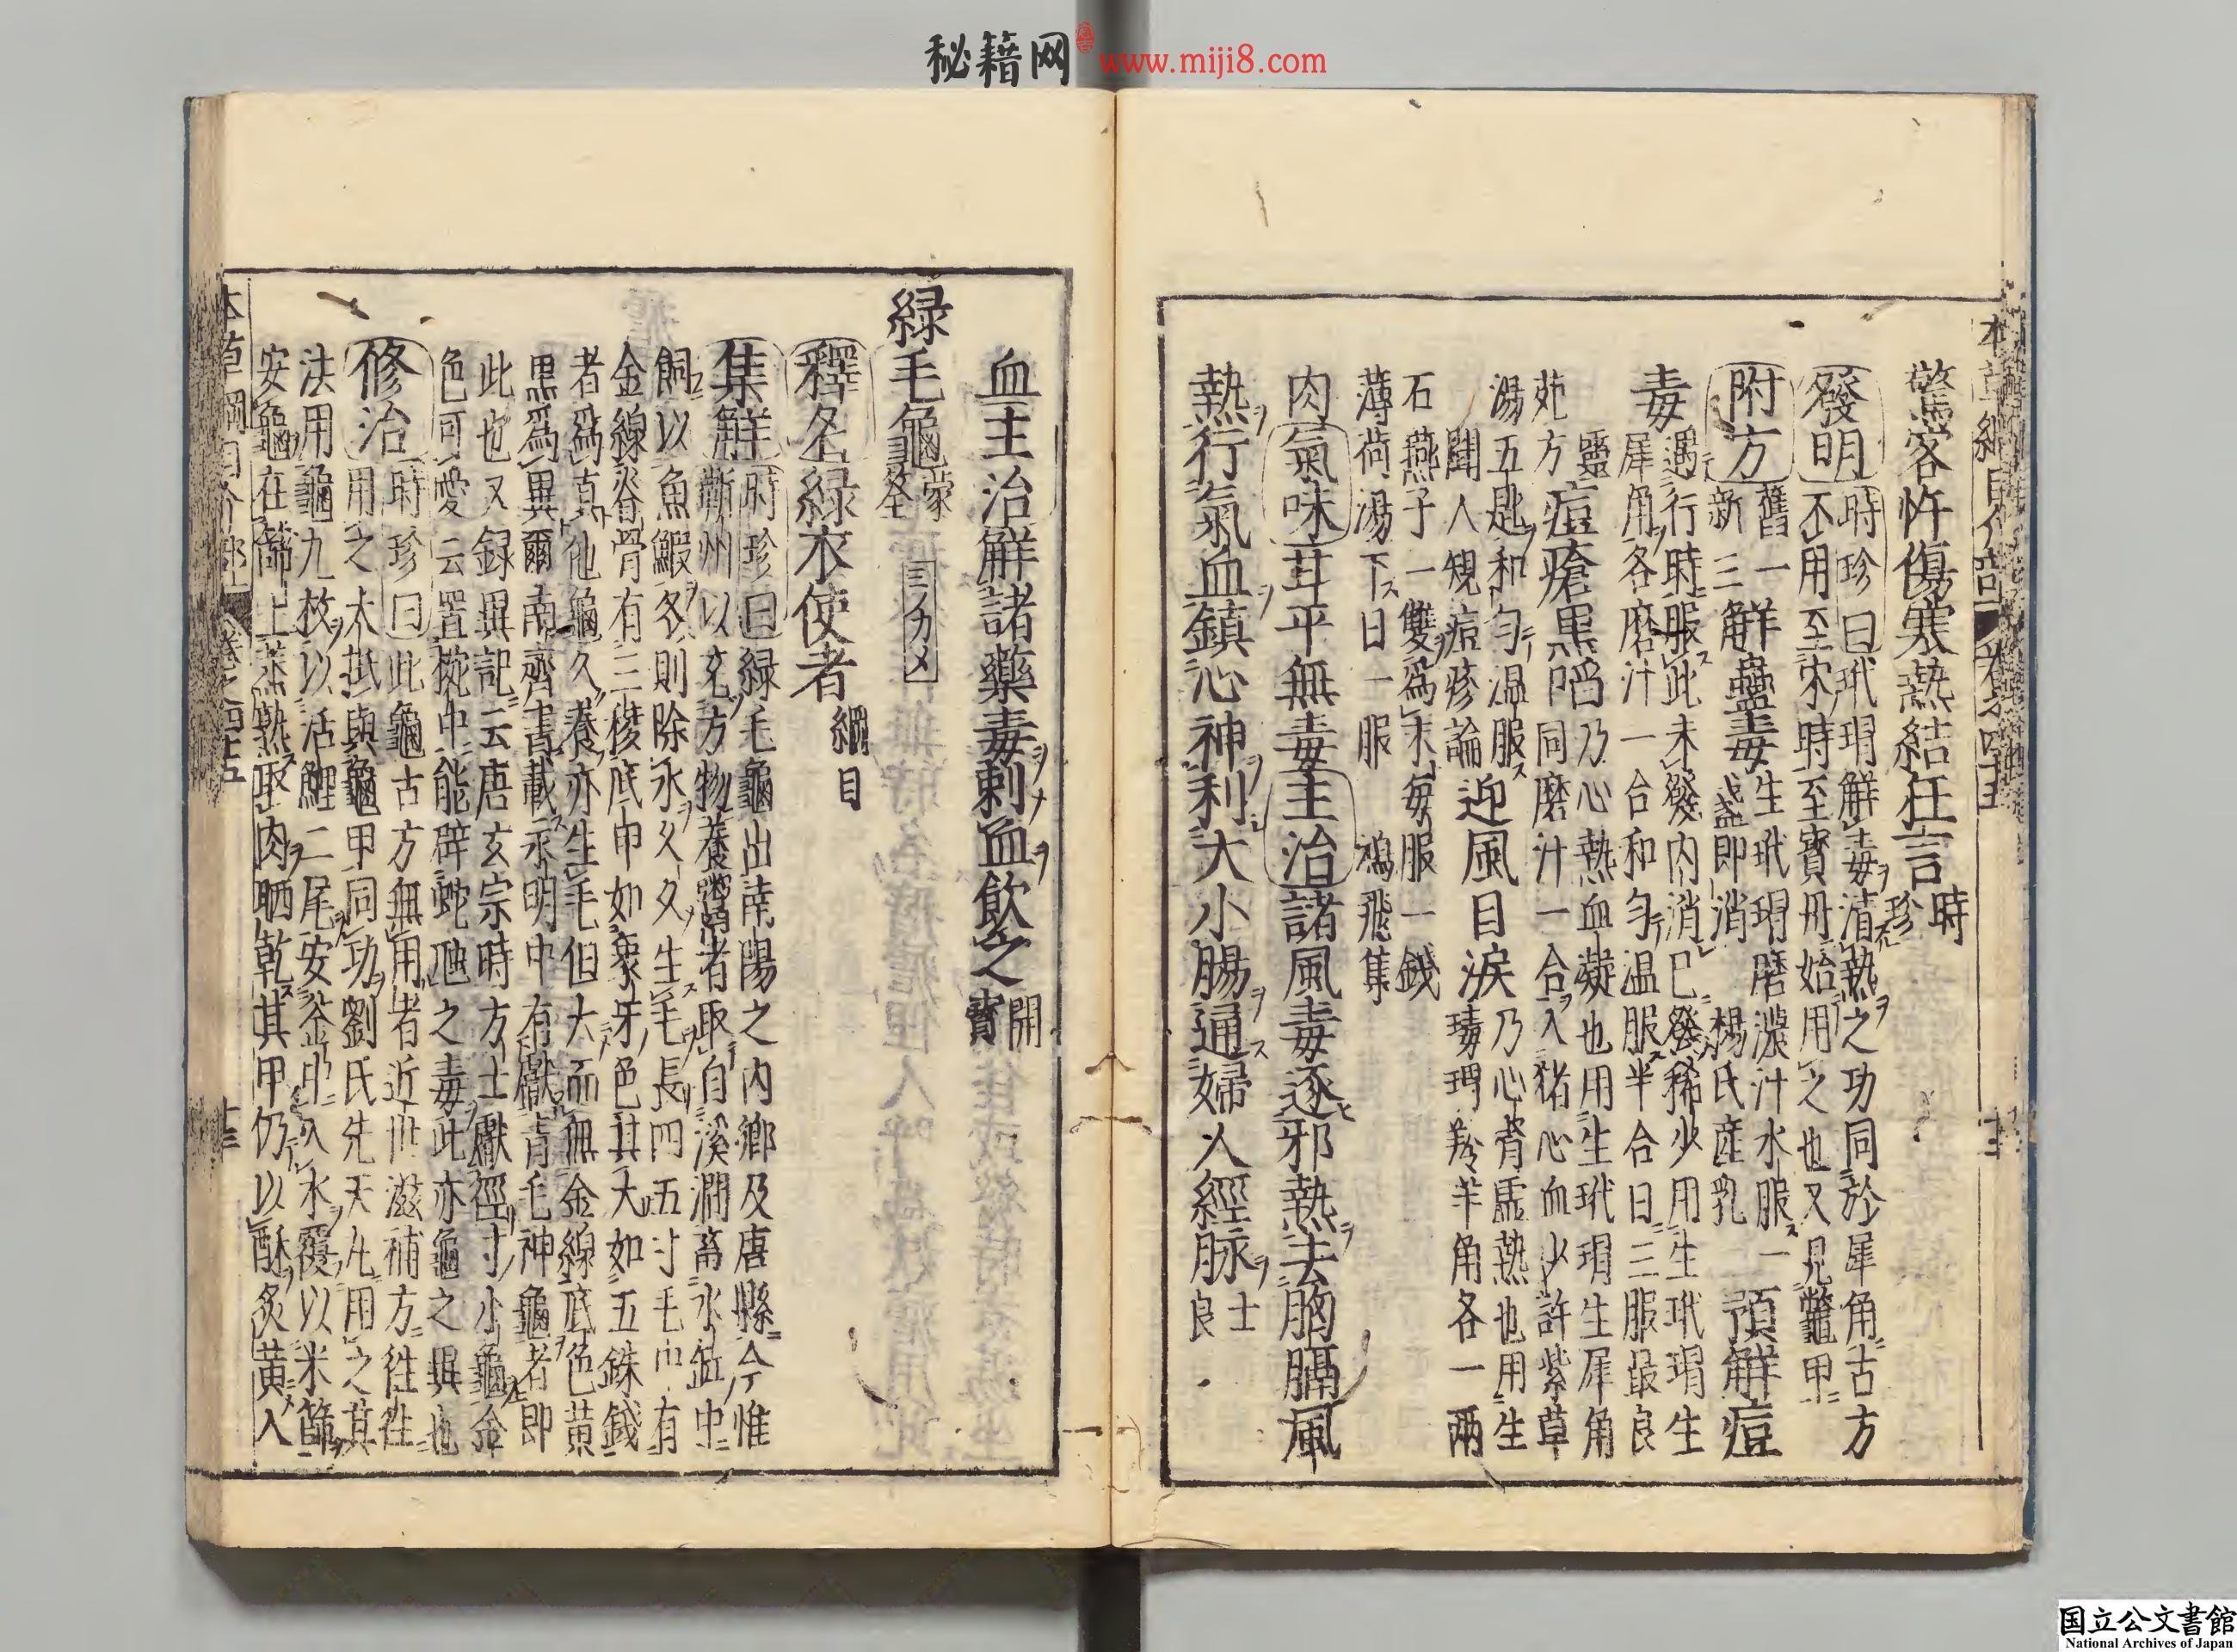 秘籍网 www.miji8.com
驚客忤傷寒熱結狂言時珍
發明時珍曰玳瑁解毒清熱之功同於犀角古方
不用至宋時至寶丹始用之也又見鼈甲
附方舊一新三解蠱毒生玳瑁磨濃汁水服一盞即消楊氏產乳預解痘
毒遇行時服此未發內消已發稀少用生玳瑁生
犀角各磨汁一合和勻溫服半合日三服最良
靈苑方痘瘡黑陷乃心熱血凝也用生玳瑁生犀角
同磨汁一合入猪心血少許紫草
湯五匙和勻溫服聞人規痘疹論迎風目淚乃心腎虛熱也用生
瑇瑁羚羊角各一兩
石燕子一雙爲末每服一錢
薄荷湯下日一服鴻飛集
肉氣味甘平無毒主治諸風毒逐邪熱去胸膈風
熱行氣血鎮心神利大小腸通婦人經脉士良
血主治解諸藥毒刺血飲之開寶
緑毛龜蒙筌ミノカメ
釋名緑衣使者綱目
集解時珍曰緑毛龜出南陽之內鄉及唐縣今惟
蘄州以充方物養鬻者取自溪澗畜水缸中
飼以魚鰕冬則除水久久生毛長四五寸毛中有
金線脊骨有三稜底甲如象牙色其大如五銖錢
者爲真他龜久養亦生毛但大而無金線底色黄
黒爲異爾南齊書載永明中有獻青毛神龜者即
此也又録異記云唐玄宗時方士獻徑寸小龜金
色可愛云置椀中能辟蛇虺之毒此亦龜之異也
修治時珍曰此龜古方無用者近世滋補方往往
用之大抵與龜甲同功劉氏先天丸用之其
法用龜九枚以活鯉二尾安釜中入水覆以米篩
安龜在篩上蒸熟取肉晒乾其甲仍以酥炙黄入
本草綱目介部卷之四十五
国立公文書館
National Archives of Japan